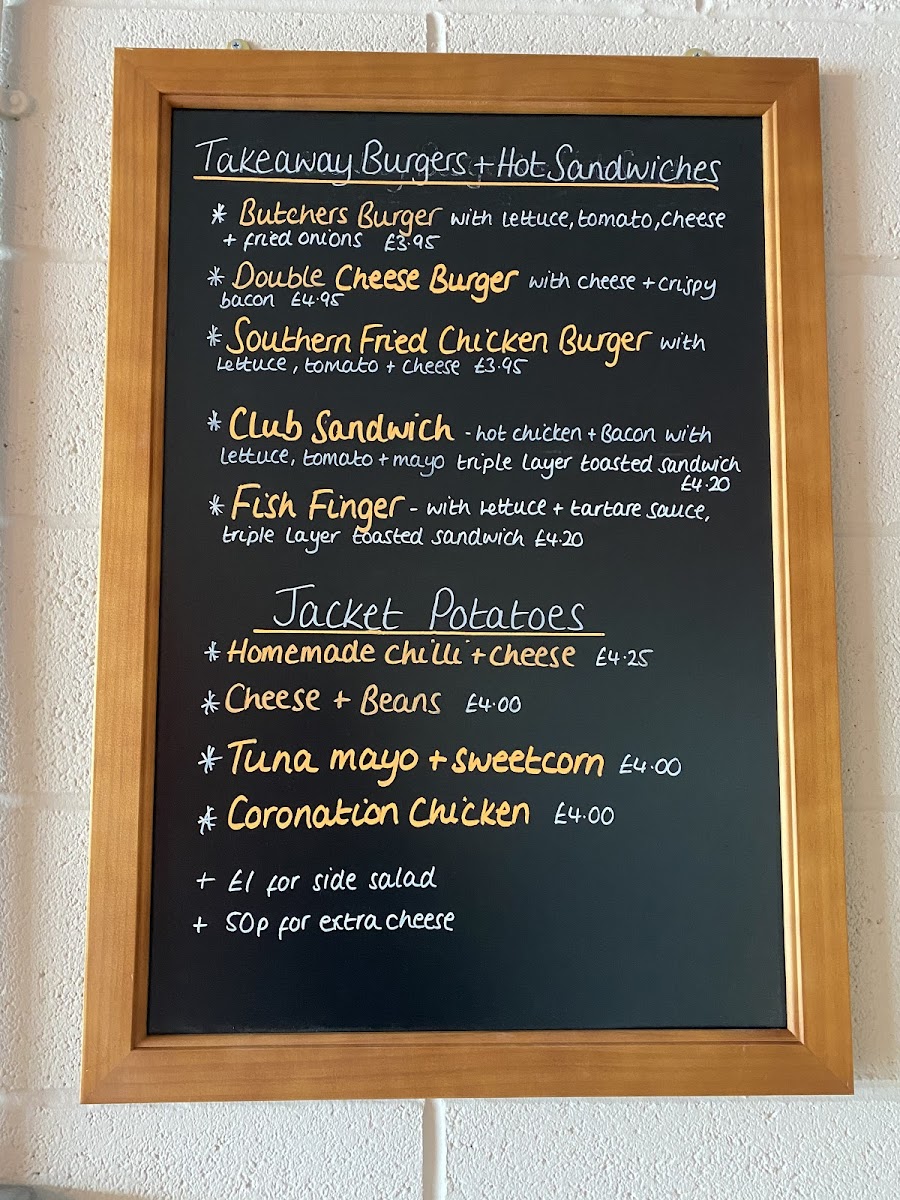 Takeaway Burgers + Hot Sandwiches
* Butchers Burger with lettuce, tomato, cheese
+ fried onions £3.95
* Double Cheese Burger with cheese + crispy
bacon £4.95
* Southern Fried Chicken Burger with
lettuce, tomato + cheese £3.95
* Club Sandwich - hot chicken + Bacon with
lettuce, tomato + mayo triple layer toasted sandwich
£4.20
* Fish Finger - with lettuce + tartare sauce,
triple layer toasted sandwich £4.20
Jacket Potatoes
* Homemade chilli + cheese £4.25
* Cheese + Beans £4.00
* Tuna mayo + sweetcorn £4.00
* Coronation Chicken £4.00
+ £1 for side salad
+ 50p for extra cheese